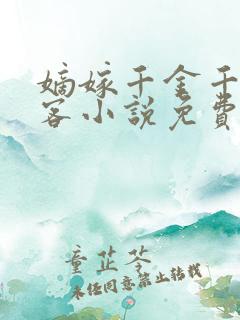 嫡嫁千金千
客小說免費
童芷苓
未经同意禁止转载